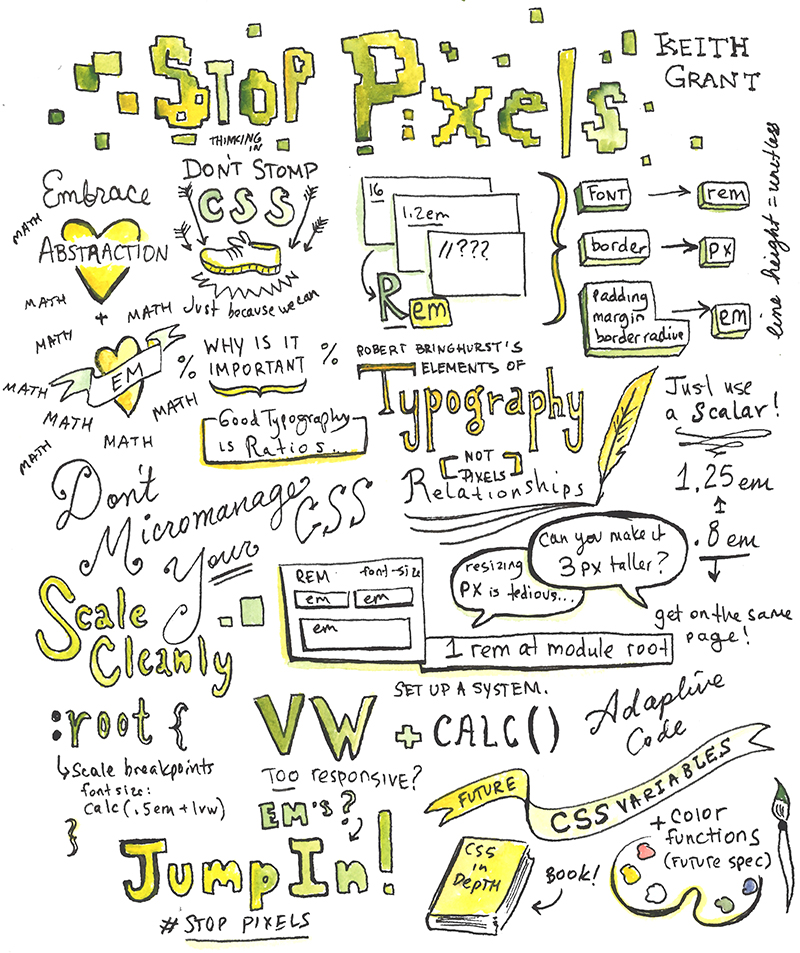 STOP PIXELS
THINKING
IN
KEITH
GRANT
Embrace
MATH
ABSTRACTION
MATH
+
MATH
MATH
EM
MATH
MATH
MATH
MATH
MATH
DON'T STOMP
CSS
Just because we can
% WHY IS IT %
IMPORTANT
Good Typography
is Ratios...
16
1.2em
//???
Rem
FONT
rem
border
px
padding
margin
border radive
em
line height = unitless
ROBERT BRINGHURST'S
ELEMENTS OF
Typography
NOT
PIXELS
Relationships
Just use
a Scalar!
1.25 em
.8 em
get on the same
page!
Don't
Micromanage
Your
CSS
Scale
Cleanly
REM font-size
em em
em
resizing
PX is tedious...
can you make it
3 px taller?
1 rem at module root
SET UP A SYSTEM.
:root {
Scale breakpoints
font size:
calc(.5em + 1vw)
}
VW + CALC()
TOO responsive?
EM's?
Adaptive
Code
FUTURE
CSS VARIABLES
+ color
functions
(Future spec)
CSS
in
DEPTH
BOOK!
Jump In!
# STOP PIXELS